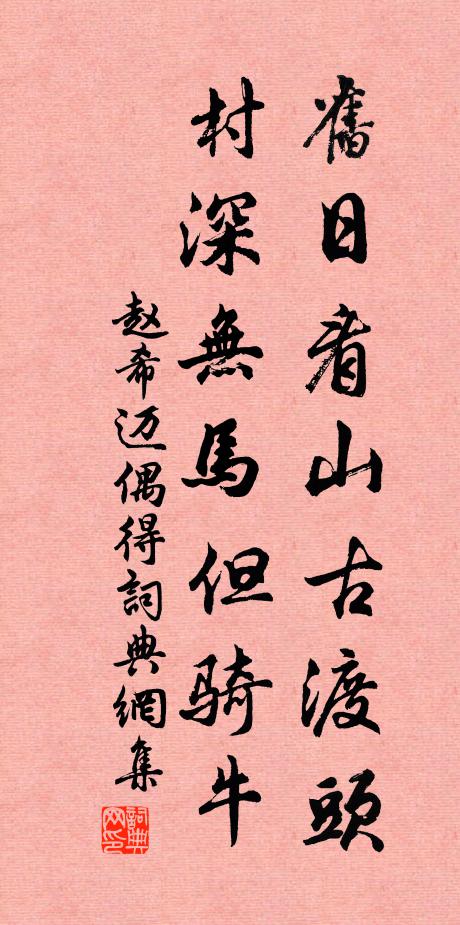 舊日看山古渡頭
村深無馬但騎牛
赵希迈偶得詞典網集
詞典网印